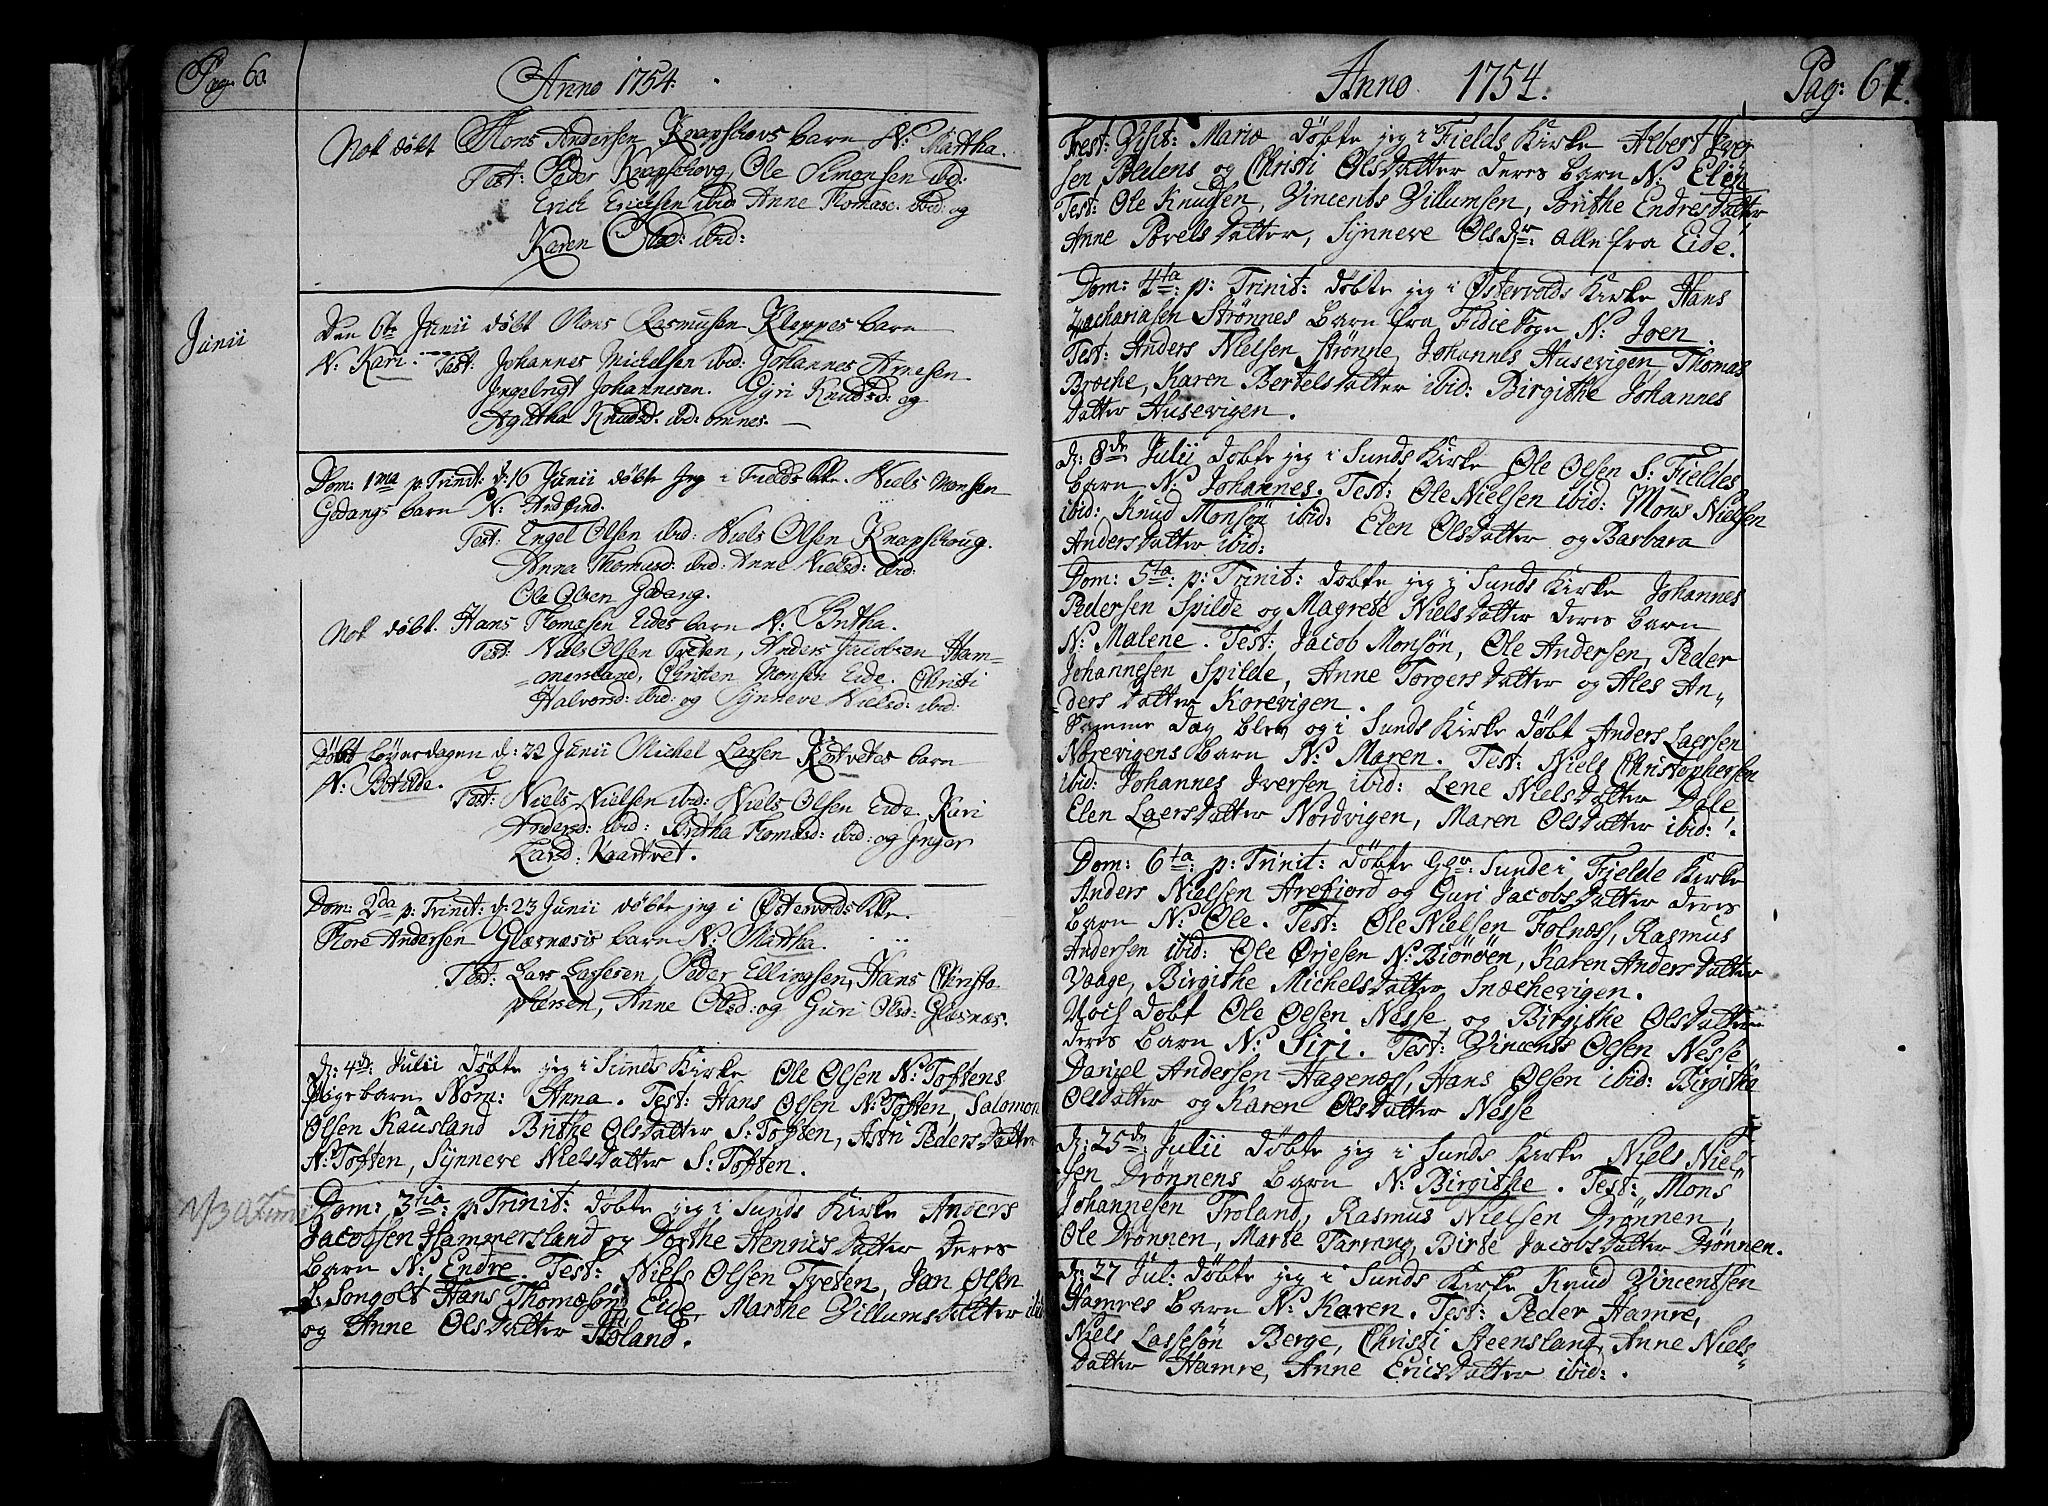 Pag. 60.
Anno 1754.
Nok døbt Mons Andersen Knapschovs barn N: Martha.
Test: Peder Knapschovg, Ole Simonsen ibid:
Erich Ericksen ibid: Anne Thomasd: ibid: og
Karen Olsd: ibid:
Junii
Den 6te Junii døbt Mons Rasmusen Kleppes barn
N: Kari. Test: Johannes Michelsen ibid: Johannes Arnesen
Ingelrigt Johannesen. Gyri Knudsd: og
Agatha Knudsd: ibid: omnes.
Dom: 1ma p: Trinit: d: 16 Junii døbte jeg i Fields Kke. Niels Monsen
Gedangs barn N: Andfind.
Test: Engel Olsen ibid: Niels Olsen Knapschoug.
Anna Thomasd: ibid: Anne Nielsd: ibid:
Ole Olsen Gedang.
Nok døbt. Hans Thomesen Eides barn N: Britha.
Test: Niels Olsen Tveten, Anders Jacobsen Ham-
mersland, Christen Monsen Eide. Christi
Halvorsd: ibid: og Synneve Nielsd: ibid:
Døbt Løverdagen d: 22 Junii Michel Larsen Kørtvetes barn
N: Botilde.
Test: Niels Nielsen ibid: Niels Olsen Eide. Kari
Andersd: ibid: Britha Thomasd: ibid: og Inger
Larsd: Kaartvet.
Dom: 2da p: Trinit: d: 23 Junii døbte jeg i Østervolds Kke.
Tore Andersen Glæsnæsis barn N: Martha.
Test: Lars Larsesen, Peder Ellingsen, Hans Christo-
phersen, Anne Olsd: og Guri Olsd: Glæsnæs.
d: 4de: Julii døbte jeg i Sunds Kirke Ole Olsen N: Toftens
Pigebarn Nom: Anna. Test: Hans Olsen N: Toften, Salomon
Olsen Kausland Brithe Olsdatter S: Toften, Astri Pedersdatter
N: Toften, Synneve Nielsdatter S: Toften.
Dom: 3tia: p: Trinit: døbte jeg i Sunds Kirke Anders
Jacobsen Hammersland og Dorthe Henricsdatter deres
barn N: Endre. Test: Niels Olsen Tveten, Jan Olsen
Songolt Hans Thomesøn Eide, Marthe Villumsdatter ibid
og Anne Olsdatter Høland.
Anno 1754.
Pag: 61.
Fest: Visit: Mariæ døbte jeg i Fields Kirke Albert
sen Pedens og Christi Olsdatter deres barn N: Elen
Test: Ole Knudsen, Vincents Villumsen, Brithe Endresdatter,
Anne Povelsdatter, Synneve Olsdr: alle fra Eide.
Dom: 4ta: p: Trinit: døbte jeg i Østervolds Kirke Hans
Zachariasen Strønnes barn fra Fidie Sogn N: Joen.
Test: Anders Nielsen Strønne, Johannes Husevigen, Thomas
Broche, Karen Bertelsdatter ibid: Birgithe Johannes
datter Husevigen.
d: 8de Julii døbte jeg i Sunds Kirke Ole Olsen S: Fieldes
barn N: Johannes. Test: Ole Nielsen ibid: Mons Nielsen
ibid: Knud Monsøn ibid: Elen Olsdatter og Barbara
Andersdatter ibid:
Dom: 5ta: p: Trinit: døbte jeg i Sunds Kirke Johannes
Pedersen Spilde og Magrete Nielsdatter deres barn
N: Malene. Test: Jacob Monsøn, Ole Andersen, Peder
Johannesen Spilde, Anne Torgersdatter og Ales An-
dersdatter Korevigen.
Samme dag blev og i Sunds Kirke døbt Anders Laersen
Norevigens barn N: Maren. Test: Niels Christophersen
ibid: Johannes Iversen ibid: Lene Nielsdatter Dale,
Elen Laersdatter Nordvigen, Maren Olsdatter ibid:
Dom: 6ta: p: Trinit: døbte Hr: Sunde i Fjelde Kirke
Anders Nielsen Arefiord og Guri Jacobsdatter deres
barn N: Ole. Test: Ole Nielsen Folnæss, Rasmus
Andersen ibid: Ole Ørjesen N: Biörøen, Karen Andersdatter
Vaage, Birgithe Michelsdatter Snechevigen.
Noch døbt Ole Olsen Nesse og Birgithe Olsdatter
deres barn N: Siri. Test: Vincents Olsen Nesse
Daniel Andersen Hagenæss, Hans Olsen ibid: Birgitha
Olsdatter og Karen Olsdatter Nesse
d: 25de Julii døbte jeg i Sunds Kirke Niels Niel-
sen Drønnens barn N: Birgithe. Test: Mons
Johannesen Troland, Rasmus Nielsen Drønnen,
Ole Drønnen, Marte Tarrang, Birte Jacobsdatter Drønnen.
d: 27 Jul: døbte jeg i Sunds Kirke Knud Vincentsen
Hamres barn N: Karen. Test: Peder Hamre,
Niels Lassesøn Berge, Christi Steensland, Anne Niels-
datter Hamre, Anne Ericsdatter ibid:.